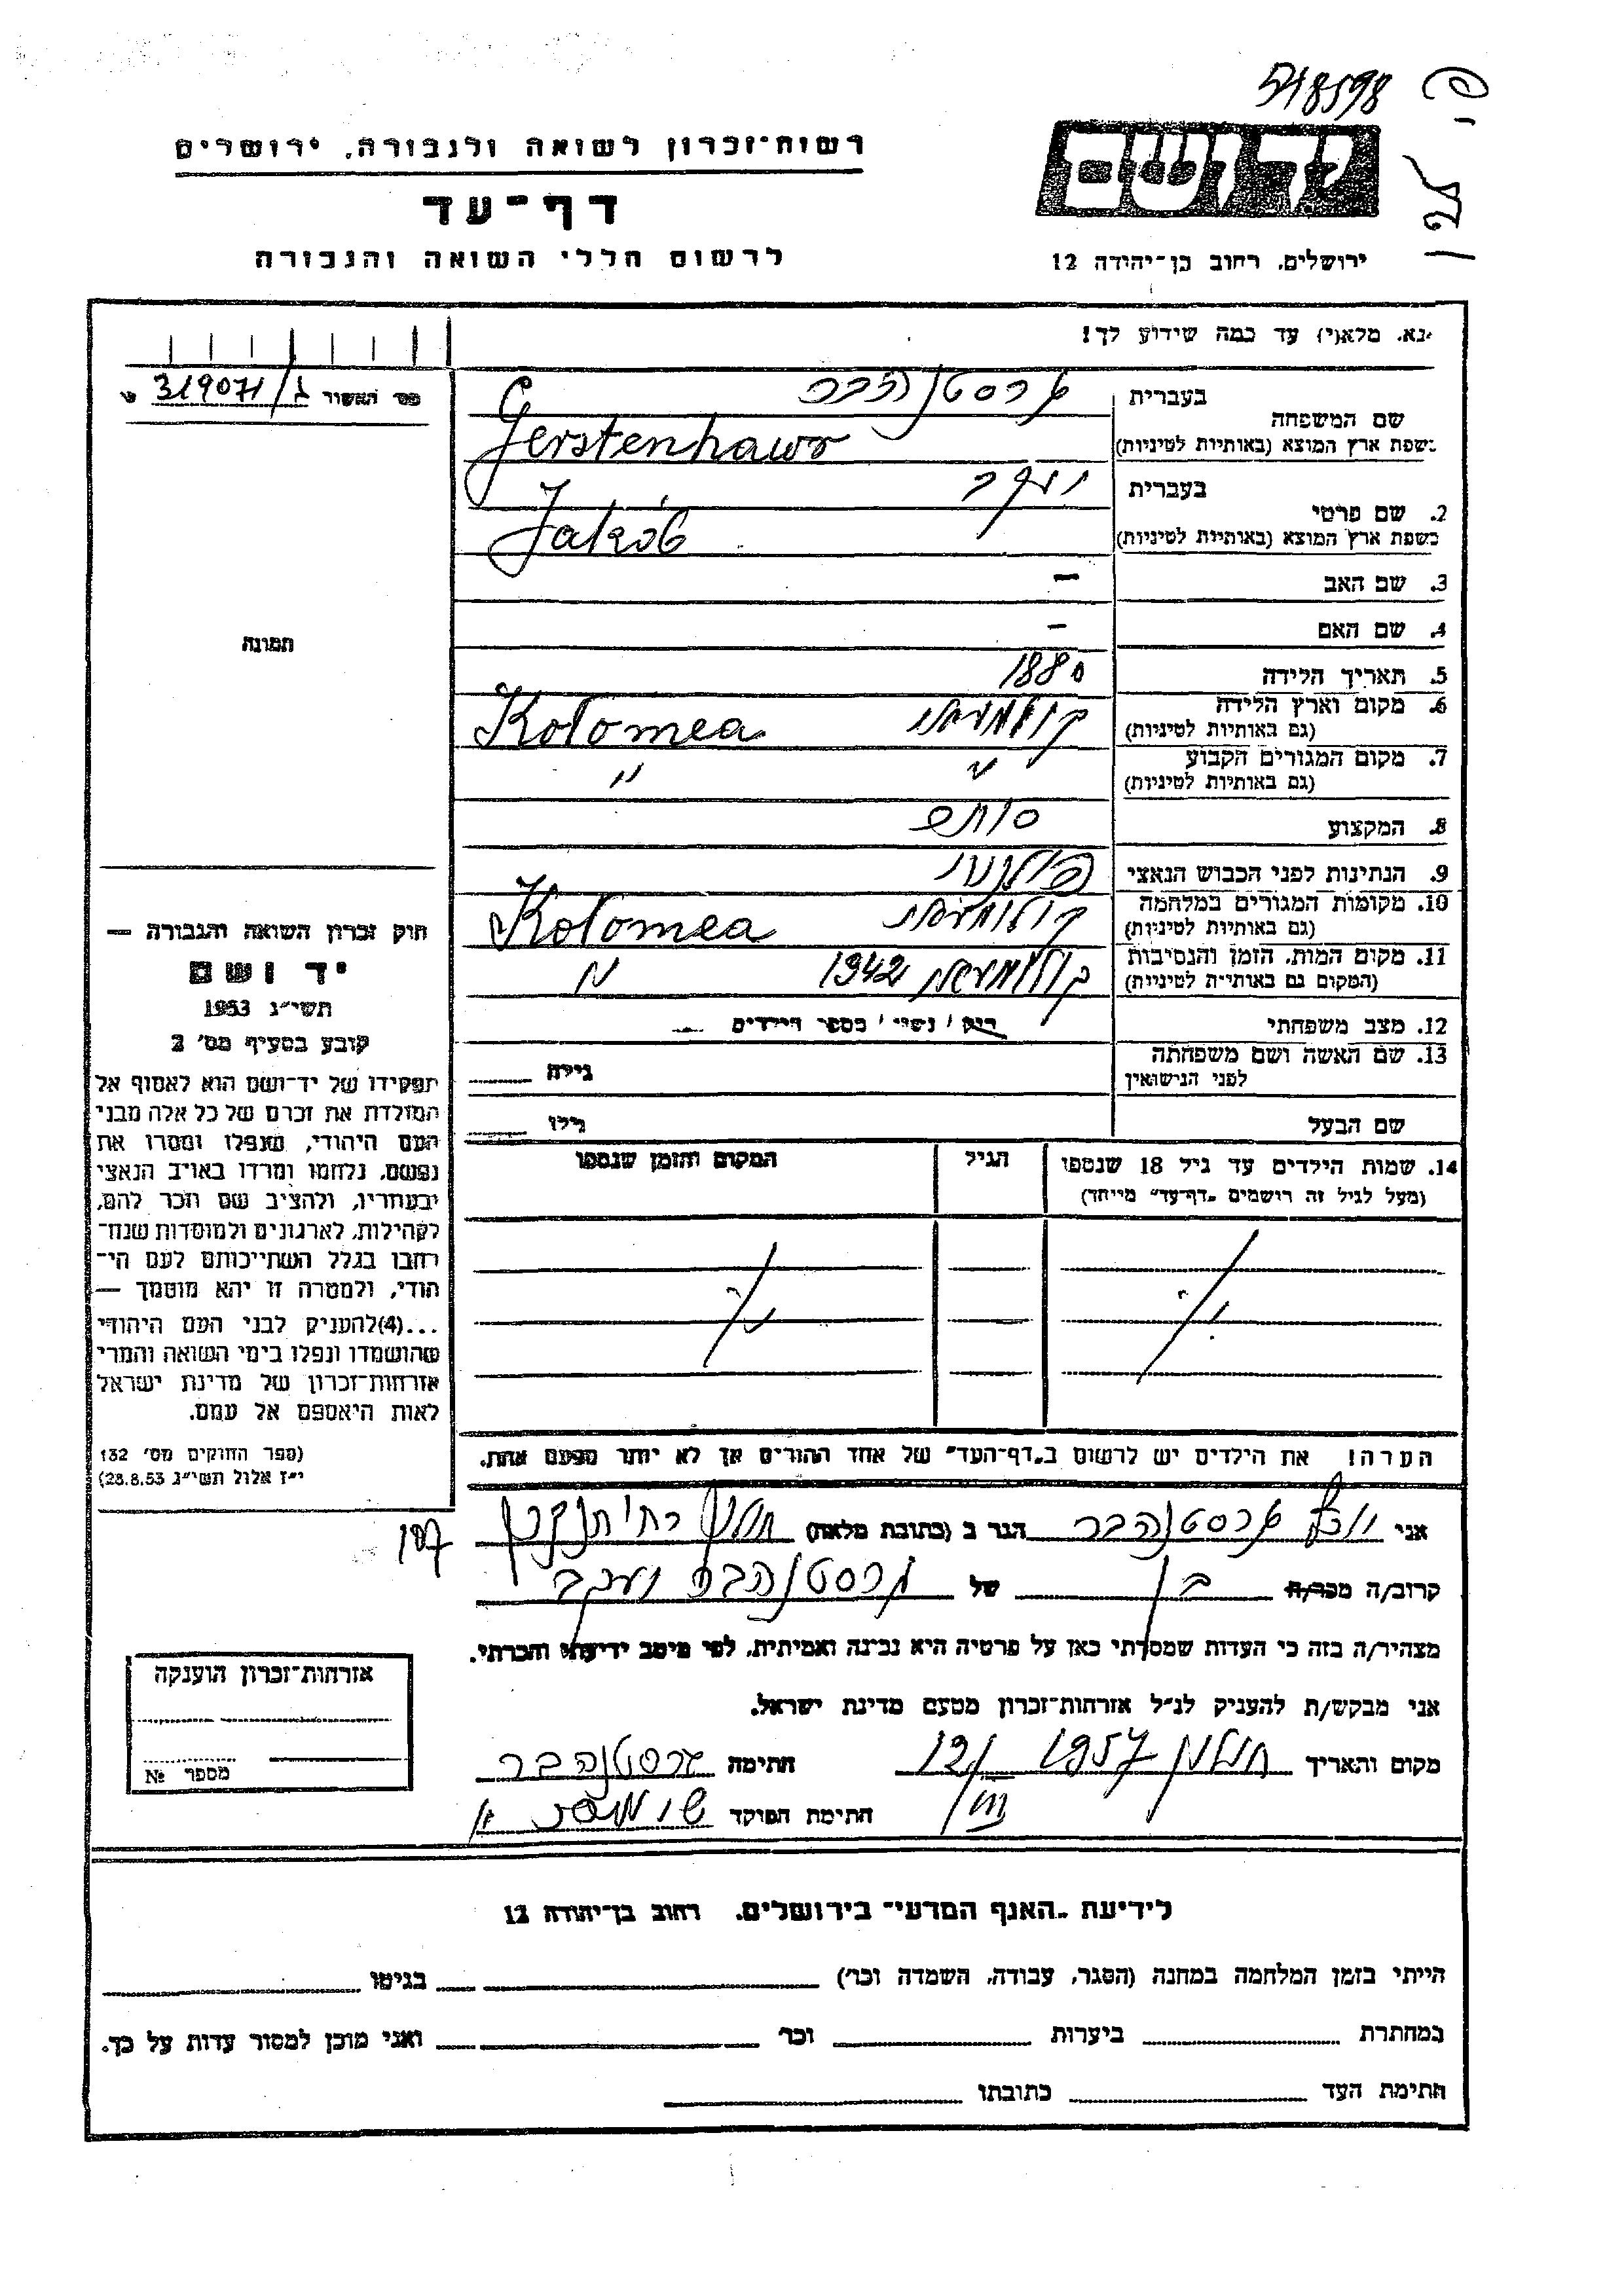 518598
רשות-זכרון לשואה ולגבורה, ירושלים
דף-עד
לרשום חללי השואה והגבורה
יד ושם
ירושלים, רחוב בן-יהודה 12
נא, מלא(י) עד כמה שידוע לך!
מס' האשור ג/319071
שם המשפחה בעברית גרסטנהבר
בשפת ארץ המוצא (באותיות לטיניות) Gerstenhawr
2. שם פרטי בעברית יעקב
בשפת ארץ המוצא (באותיות לטיניות) Jakób
3. שם האב –
4. שם האם –
5. תאריך הלידה 1880
6. מקום וארץ הלידה (גם באותיות לטיניות) Kołomea
7. מקום המגורים הקבוע (גם באותיות לטיניות) " "
8. המקצוע סוחר
9. הנתינות לפני הכבוש הנאצי
10. מקומות המגורים במלחמה (גם באותיות לטיניות) Kołomea
11. מקום המות, הזמן והנסיבות (המקום גם באותיות לטיניות) 1942 "
12. מצב משפחתי רוק / נשוי / מספר הילדים
13. שם האשה ושם משפחתה לפני הנישואין גילה
שם הבעל גילו
14. שמות הילדים עד גיל 18 שנספו הגיל המקום והזמן שנספו
(מעל לגיל זה רושמים "דף-עד" מיוחד)
הערה! את הילדים יש לרשום ב"דף-העד" של אחד ההורים אך לא יותר מפעם אחת.
תמונה
חוק זכרון השואה והגבורה —
יד ושם
תשי"ג 1953
קובע בסעיף מס' 2
תפקידו של יד-ושם הוא לאסוף אל
המולדת את זכרם של כל אלה מבני
העם היהודי, שנפלו ומסרו את
נפשם, נלחמו ומרדו באויב הנאצי
ובעוזריו, ולהציב שם וזכר להם,
לקהילות, לארגונים ולמוסדות שנח-
רבו בגלל השתייכותם לעם הי-
הודי, ולמטרה זו יהא מוסמך —
...(4) להעניק לבני העם היהודי
שהושמדו ונפלו בימי השואה והמרי
אזרחות-זכרון של מדינת ישראל
לאות היאספם אל עמם.
(ספר החוקים מס' 132
י"ז אלול תשי"ג 28.8.53)
אני גרסטנהבר הגר ב (כתובת מלאה) חולון
קרוב/ה מכר/ה בן של גרסטנהבר יעקב
מצהיר/ה בזה כי העדות שמסרתי כאן על פרטיה היא נכונה ואמיתית, לפי מיטב ידיעתי והכרתי.
אני מבקש/ת להעניק לנ"ל אזרחות-זכרון מטעם מדינת ישראל.
מקום והתאריך חולון 1957 חתימה גרסטנהבר
חתימת הפוקד
אזרחות-זכרון הוענקה
מספר №
לידיעת "האגף המדעי" בירושלים, רחוב בן-יהודה 12
הייתי בזמן המלחמה במחנה (הסגר, עבודה, השמדה וכו') בגיטו
במחתרת ביערות וכו' ואני מוכן למסור עדות על כך.
חתימת העד כתובתו